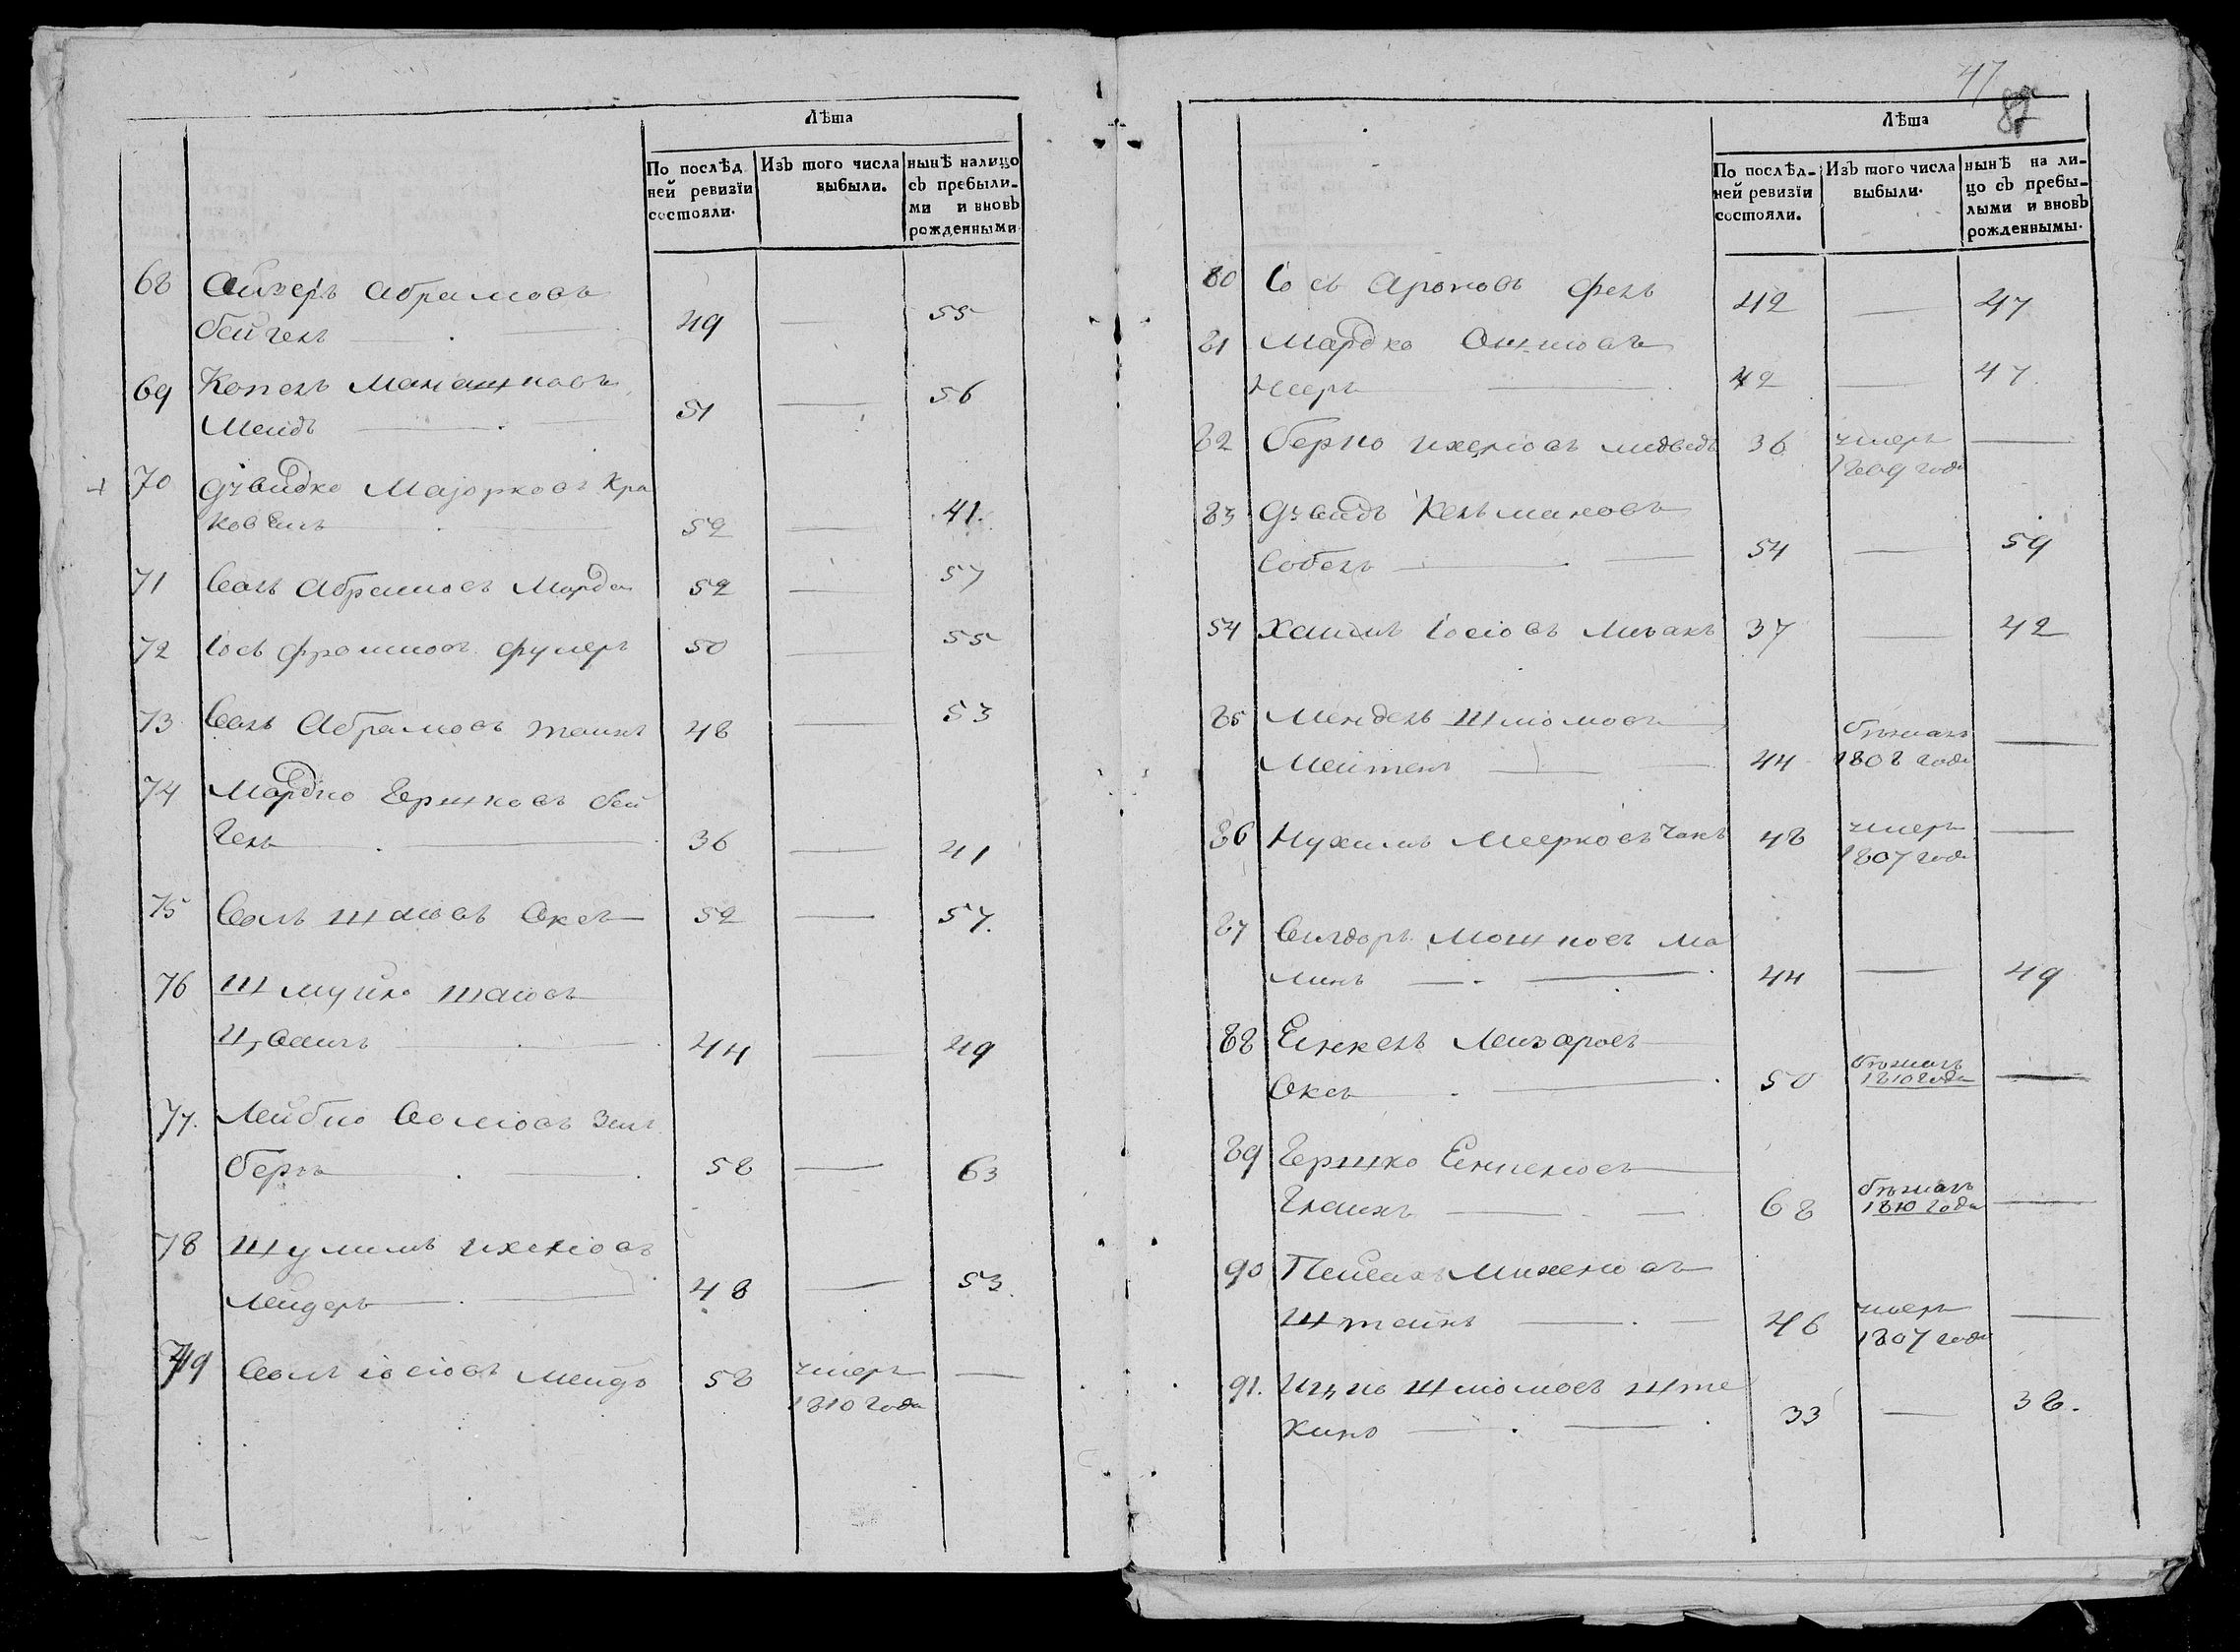 Лѣта
По послѣд
ней ревизїи
состояли.
Изъ того числа
выбыли.
нынѣ налицо
съ пребыли-
ми и вновь
рожденными
68 Айзеръ Абрамовъ
бейгелъ 49 — 55
69 Копель Манашковъ
Мендъ 51 — 56
70 Дувидко Маіорковъ Кра
ковскій 52 — 41.
71 Іоаль Абрамовъ Марда 52 — 57
72 Іось Фроимовъ Фулеръ 50 — 55
73 Іоаль Абрамовъ Танкъ 48 — 53
74 Мардко Гершковъ бей
гель 36 — 41
75 Шаіовъ Оксъ 52 — 57.
76 Шмуйло Шаіовъ
Цвангъ 44 — 49
77. Лейбко Зиль
беръ 58 — 63
78 Шулимъ Ихеліовъ
Лейдеръ 48 — 53.
79 Іосіовъ Мендъ 58 умеръ —
1810 года
47
87
Лѣта
По послѣд-
ней ревизїи
состояли.
Изъ того числа
выбыли.
нынѣ на ли-
цо съ пребы-
лыми и вновь
рожденнымы.
80 Іось Ароновъ Фель 42 — 47
81 Мардко
Нееръ 42 — 47.
82 Берко Ихеліовъ медведь 36 умеръ —
1809 года
83 Дувидъ Кельмановъ
Собель 54 — 59
54 Хаимъ Іосіовъ 37 — 42
85 Мендель Шліомовъ
Мейтель 44 бѣжалъ —
1808 года
86 Нухимъ Меерковъ Чакъ 48 умеръ —
1807 года
87 Мошковъ Ма
линъ 44 — 49
88 Еинкель Лейзаровъ
Оксъ 50 бѣжалъ —
1810 года
89 Гершко Еинкеліовъ
Глаихъ 68 бѣжалъ —
1810 года
90 Пейсахъ Михеліовъ
Штаинъ 46 умеръ —
1807 года
91. Ицко Шліомовъ Ште
33 — 38.